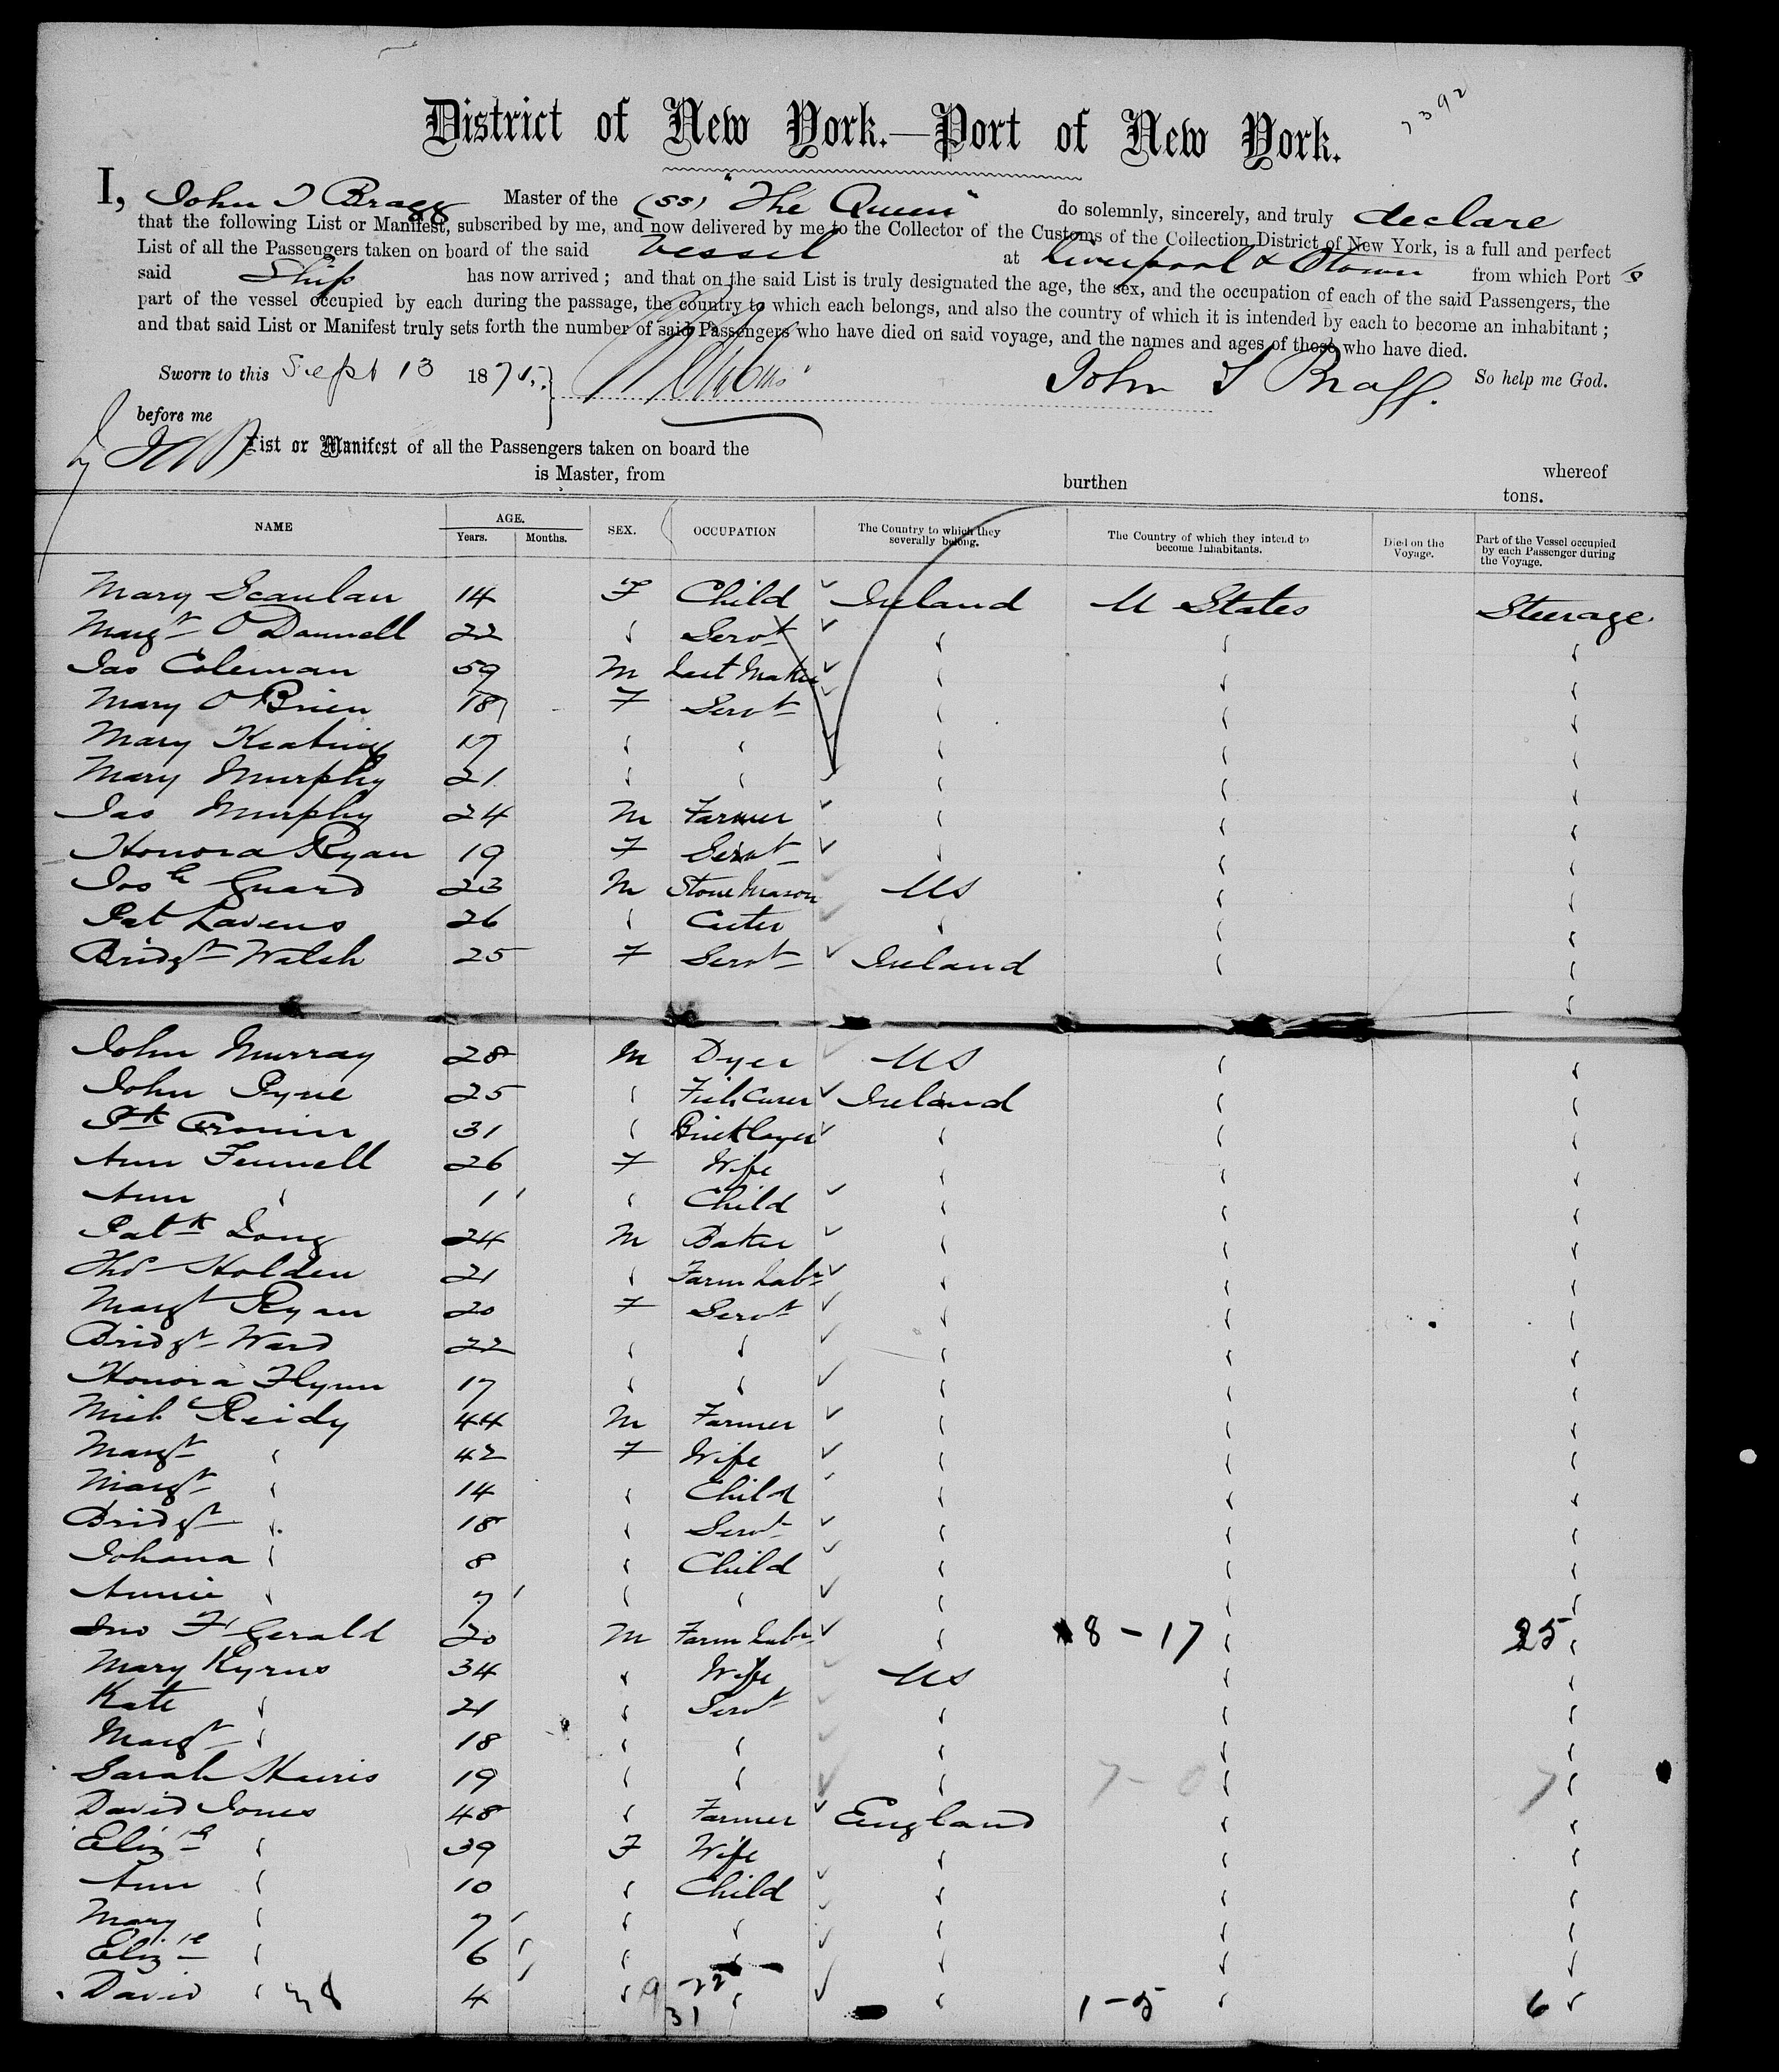 7392
District of New York.—Port of New York.
I, John T Bragg Master of the (SS) "The Queen" do solemnly, sincerely, and truly declare
that the following List or Manifest, subscribed by me, and now delivered by me to the Collector of the Customs of the Collection District of New York, is a full and perfect
List of all the Passengers taken on board of the said Vessel at Liverpool & Qtown from which Port s
said Ship has now arrived; and that on the said List is truly designated the age, the sex, and the occupation of each of the said Passengers, the
part of the vessel occupied by each during the passage, the country to which each belongs, and also the country of which it is intended by each to become an inhabitant;
and that said List or Manifest truly sets forth the number of said Passengers who have died on said voyage, and the names and ages of those who have died.
Sworn to this Sept 13 1875. John T Bragg. So help me God.
before me
by
List or Manifest of all the Passengers taken on board the whereof
is Master, from burthen tons.
NAME AGE. Years. Months. SEX. OCCUPATION The Country to which they severally belong. The Country of which they intend to become Inhabitants. Died on the Voyage. Part of the Vessel occupied by each Passenger during the Voyage.
Mary Scanlan 14 F Child Ireland U States Steerage
Margt O'Donnell 22 " Servt " " "
Jas Coleman 59 M Last Maker " " "
Mary O'Brien 18 F Servt " " "
Mary Keating 17 " " " " "
Mary Murphy 21 " " " " "
Jas Murphy 24 M Farmer " " "
Honora Ryan 19 F Servt " " "
Josh Guard 23 M Stone Mason US " "
Pat Lavens 26 " Carter " " "
Bridgt Walsh 25 F Servt Ireland " "
John Murray 28 M Dyer US " "
John Pyne 25 " Fish Curer Ireland " "
Ptk Cronin 31 " Bricklayer " " "
Ann Fennell 26 F Wife " " "
Ann " 1 " Child " " "
Patk Long 24 M Baker " " "
Thos Holden 21 " Farm Labr " " "
Margt Ryan 20 F Servt " " "
Bridgt Ward 22 " " " " "
Honora Flynn 17 " " " " "
Michl Reidy 44 M Farmer " " "
Margt " 42 F Wife " " "
Margt " 14 " Child " " "
Bridgt " 18 " Servt " " "
Johana " 8 " Child " " "
Annie " 7 " " " " "
Jno F'Gerald 20 M Farm Labr " 8-17 " 25 "
Mary Kyrns 34 " Wife US " "
Kate " 21 " Servt " " "
Margt " 18 " " " " "
Sarah Harris 19 " " " 7-0 " 7 "
David Jones 48 " Farmer England " "
Elizth " 39 F Wife " " "
Ann " 10 " Child " " "
Mary " 7 " " " " "
Elizth " 6 " " " " "
David " 38 4 " 9-22 " " 1-5 " 6 "
31